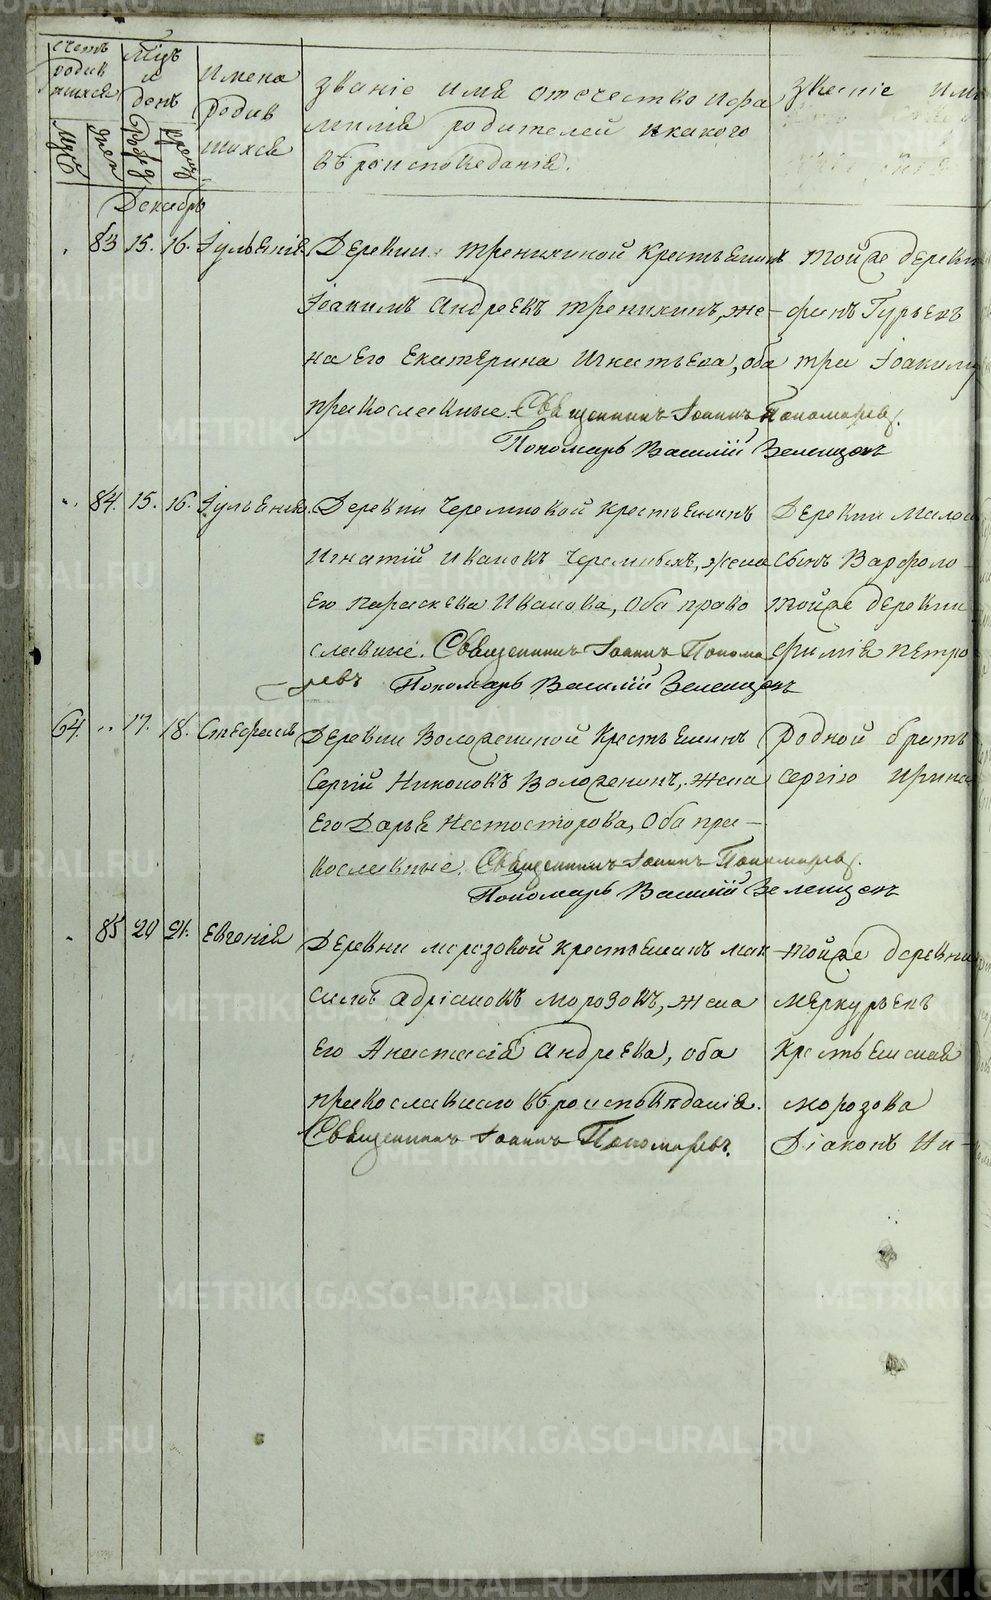 счетъ родив шихся
Муж
Жен
Мцъ и день
Рожд
Крещ
имена родив шихся
званіе имя отечество и фа
милия родителей и какого
вѣроисповеданія.
званіе имя
Декабрь
83 15. 16. Іульянія
Деревни Тренихиной Крестьянинъ
Іоакимъ Андреевъ Тренихинъ, же-
на Его Екатерина Игнатьева, оба
православные. Священникъ Іоаннъ Пономаревъ.
Пономарь Василій Зеленцовъ
тойже деревни
финъ Гурьевъ
три Іоакиму
84. 15. 16. Іульянія
Деревни Черемновой крестьянинъ
Игнатій Ивановъ Черемныхъ, жена
Его Параскева Иванова, Оба право
славные. Священникъ Іоаннъ Понома
ревъ Пономарь Василій Зеленцовъ
Деревни Малой
сынъ Варфоло-
тойже деревни
фимія Петро
64. 17. 18. Стефанъ
Деревни Воложениной Крестьянинъ
Сергій Никоновъ Воложенинъ, жена
Его Дарья Несторова, Оба пра-
вославные. Священникъ Іоаннъ Пономаревъ.
Пономарь Василій Зеленцовъ
Родной братъ
Сергію Ирина
85 20 21. Евгенія
Деревни Морозовой крестьянинъ Мак
симъ Адріановъ Морозовъ, жена
Его Анастасія Андреева, оба
православнаго вѣроисповѣданія.
Священникъ Іоаннъ Пономаревъ.
тойже деревни
Меркурьевъ
Крестьянская
Морозова
Діаконъ Ни-
METRIKI.GASO-URAL.RU